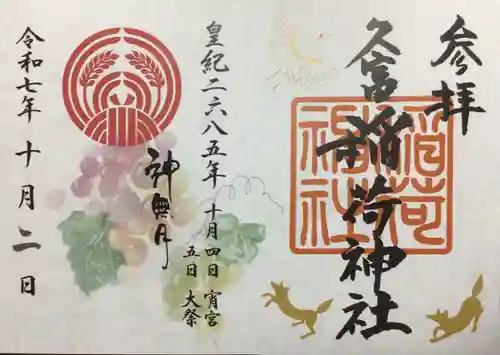 参拝
久富稲荷神社
稲荷
神社
皇紀二六八五年 十月四日 宵宮
五日 大祭
神無月
令和七年十月二日